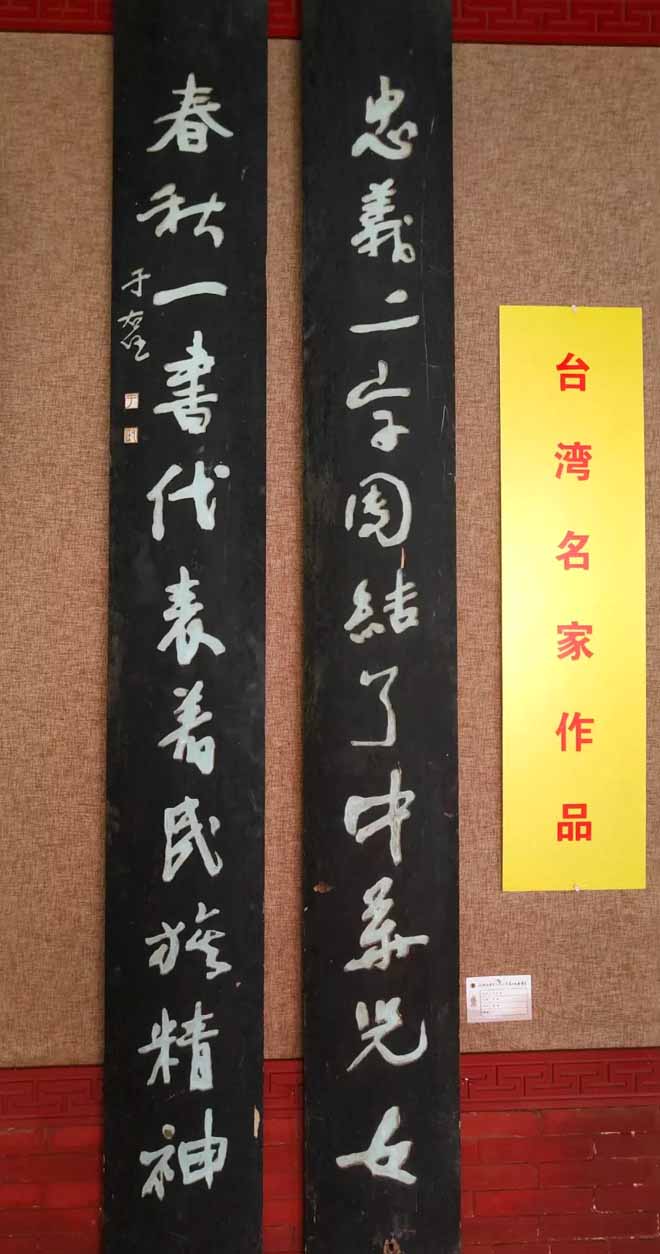 忠義二字團結了中華兒女
春秋一書代表着民族精神
于右任
台湾名家作品